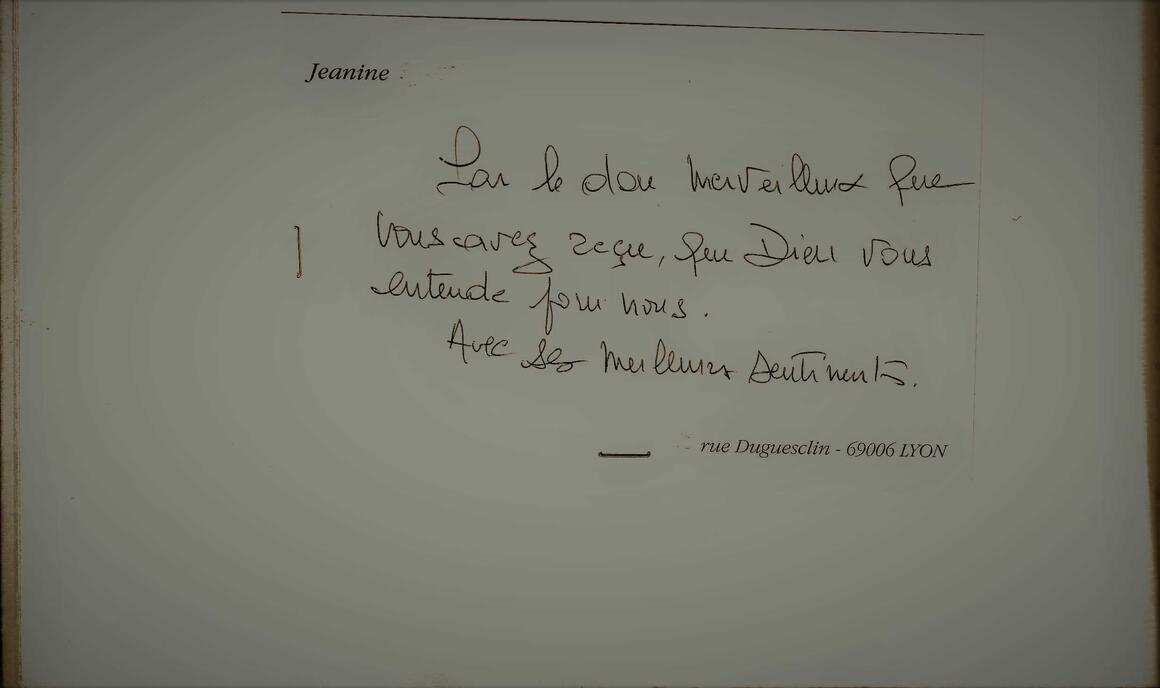 Jeanine
Par le don merveilleux que
vous avez reçu, que Dieu vous
entende pour nous.
Avec ses meilleurs sentiments.
rue Duguesclin - 69006 LYON